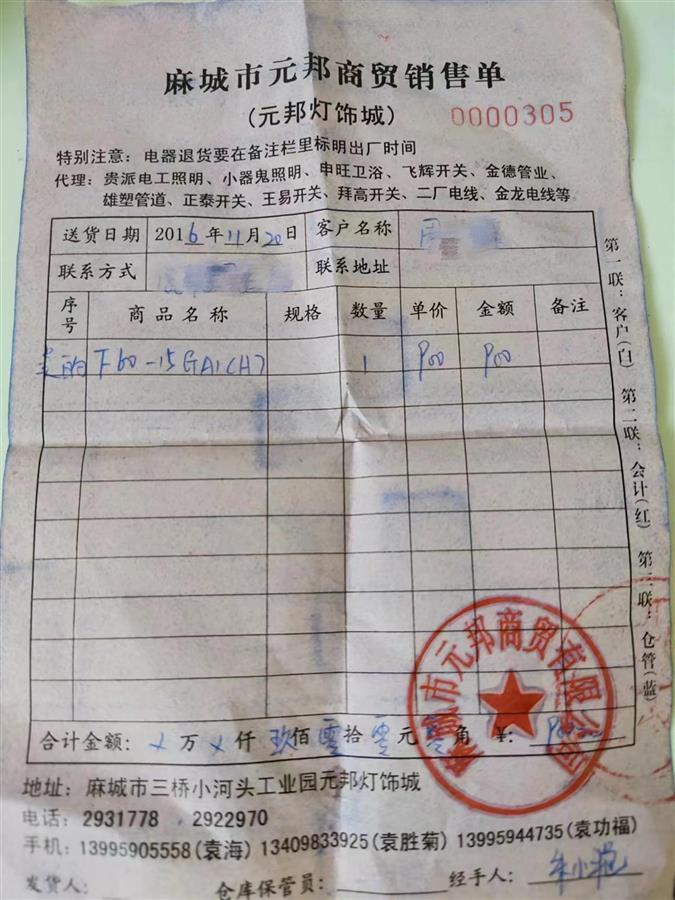 麻城市元邦商贸销售单
(元邦灯饰城)
0000305
特别注意：电器退货要在备注栏里标明出厂时间
代理：贵派电工照明、小器鬼照明、申旺卫浴、飞辉开关、金德管业、
雄塑管道、正泰开关、王易开关、拜高开关、二厂电线、金龙电线等
送货日期 2016年11月20日 客户名称 周
联系方式 联系地址
序号 商品名称 规格 数量 单价 金额 备注
美的 F60-15GA1(H) 1 900 900
合计金额：×万×仟玖佰零拾零元零角 ¥：900
地址：麻城市三桥小河头工业园元邦灯饰城
电话：2931778 , 2922970
手机：13995905558(袁海) 13409833925(袁胜菊) 13995944735(袁功福)
发货人： 仓库保管员： 经手人：
第一联：客户(白) 第二联：会计(红) 第三联：仓管(蓝)
麻城市元邦商贸有限公司